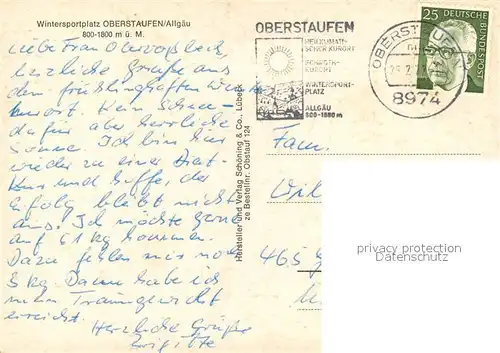 Wintersportplatz OBERSTAUFEN/Allgäu
800-1800 m ü. M.
Liebe Frau
herzliche Grüße aus
dem frühlinghaften
kurort. Kein Schnee
dafür aber herrliche
Sonne. Ich bin hier
wieder zu einer
Kur und hoffe, der
Erfolg bleibt nicht
aus. Ich möchte gerne
auf 61 kg kommen.
Dazu fehlen mir noch
3 kg. Dann habe ich
mein Traumgewicht
erreicht.
Herzliche Grüße
Brigitte
Hersteller und Verlag Schöning & Co., Lübeck
ze Bestellnr. Obstauf 124
OBERSTAUFEN
HEILKLIMATI-
SCHER KURORT
SCHROTH-
KURORT
WINTERSPORT-
PLATZ
ALLGÄU
800-1800 m
OBERSTAUFEN
8974
25
DEUTSCHE
BUNDESPOST
Fam.
465
privacy protection
privacy protection